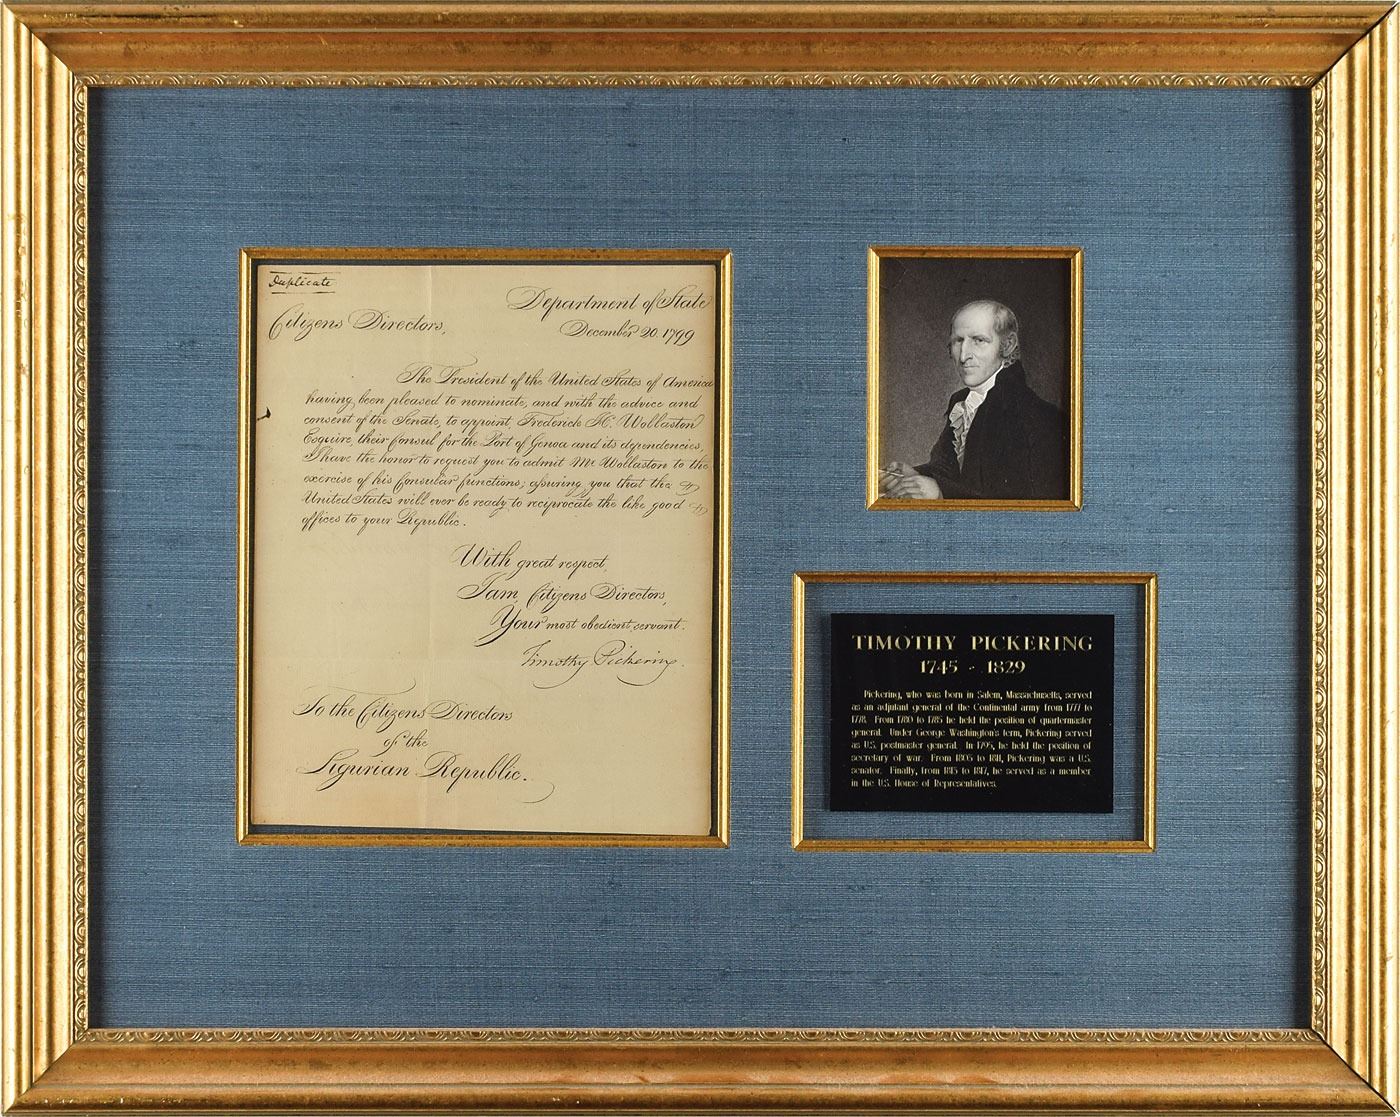 Duplicate
Department of State
December 20. 1799
Citizens Directors,
The President of the United States of America
having been pleased to nominate, and with the advice and
consent of the Senate, to appoint, Frederick H. Wollaston
Esquire, their Consul for the Port of Genoa and its dependencies,
I have the honor to request you to admit Mr Wollaston to the
exercise of his Consular functions; assuring you that the
United States will ever be ready to reciprocate the like good
offices to your Republic.
With great respect,
I am Citizens Directors,
Your most obedient servant.
Timothy Pickering.
To the Citizens Directors
of the
Ligurian Republic.
TIMOTHY PICKERING
1745 - 1829
Pickering, who was born in Salem, Massachusetts, served
as an adjutant general of the Continental army from 1777 to
1778. From 1780 to 1785 he held the position of quartermaster
general. Under George Washington's term, Pickering served
as U.S. postmaster general. In 1795, he held the position of
secretary of war. From 1803 to 1811, Pickering was a U.S.
senator. Finally, from 1813 to 1817, he served as a member
in the U.S. House of Representatives.